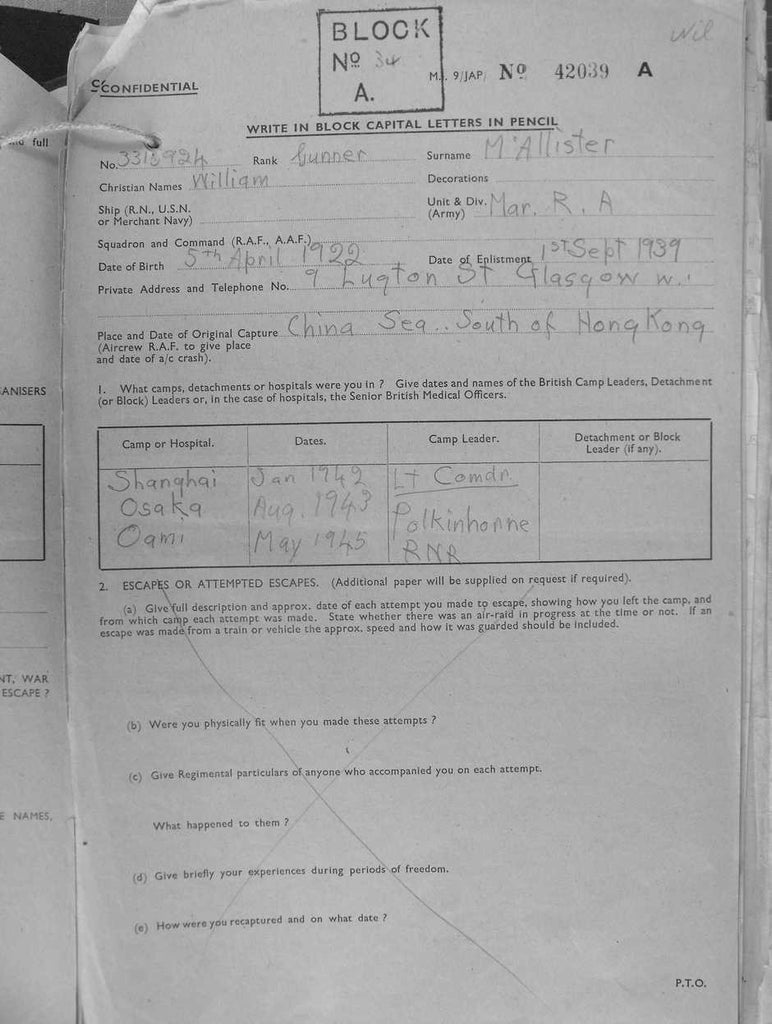 BLOCK
Nº 34
A.
Wil
CONFIDENTIAL
M. 9/JAP Nº 42039 A
WRITE IN BLOCK CAPITAL LETTERS IN PENCIL
No. Rank Gunner Surname McAllister
Christian Names William Decorations
Ship (R.N., U.S.N. or Merchant Navy) Unit & Div. (Army) Mar. R. A
Squadron and Command (R.A.F., A.A.F.)
Date of Birth 5th April 1922 Date of Enlistment 1st Sept 1939
Private Address and Telephone No. 9 Lugton St Glasgow
Place and Date of Original Capture China Sea.. South of Hong Kong
(Aircrew R.A.F. to give place
and date of a/c crash).
1. What camps, detachments or hospitals were you in ? Give dates and names of the British Camp Leaders, Detachment
(or Block) Leaders or, in the case of hospitals, the Senior British Medical Officers.
Camp or Hospital. Dates. Camp Leader. Detachment or Block Leader (if any).
Shanghai Jan 1942 Lt Comdr.
Osaka Aug. 1943 Polkinhonne
Oami May 1945 RNR
2. ESCAPES OR ATTEMPTED ESCAPES. (Additional paper will be supplied on request if required).
(a) Give full description and approx. date of each attempt you made to escape, showing how you left the camp, and
from which camp each attempt was made. State whether there was an air-raid in progress at the time or not. If an
escape was made from a train or vehicle the approx. speed and how it was guarded should be included.
(b) Were you physically fit when you made these attempts ?
(c) Give Regimental particulars of anyone who accompanied you on each attempt.
What happened to them ?
(d) Give briefly your experiences during periods of freedom.
(e) How were you recaptured and on what date ?
P.T.O.
full
ANISERS
NT, WAR
ESCAPE ?
E NAMES,